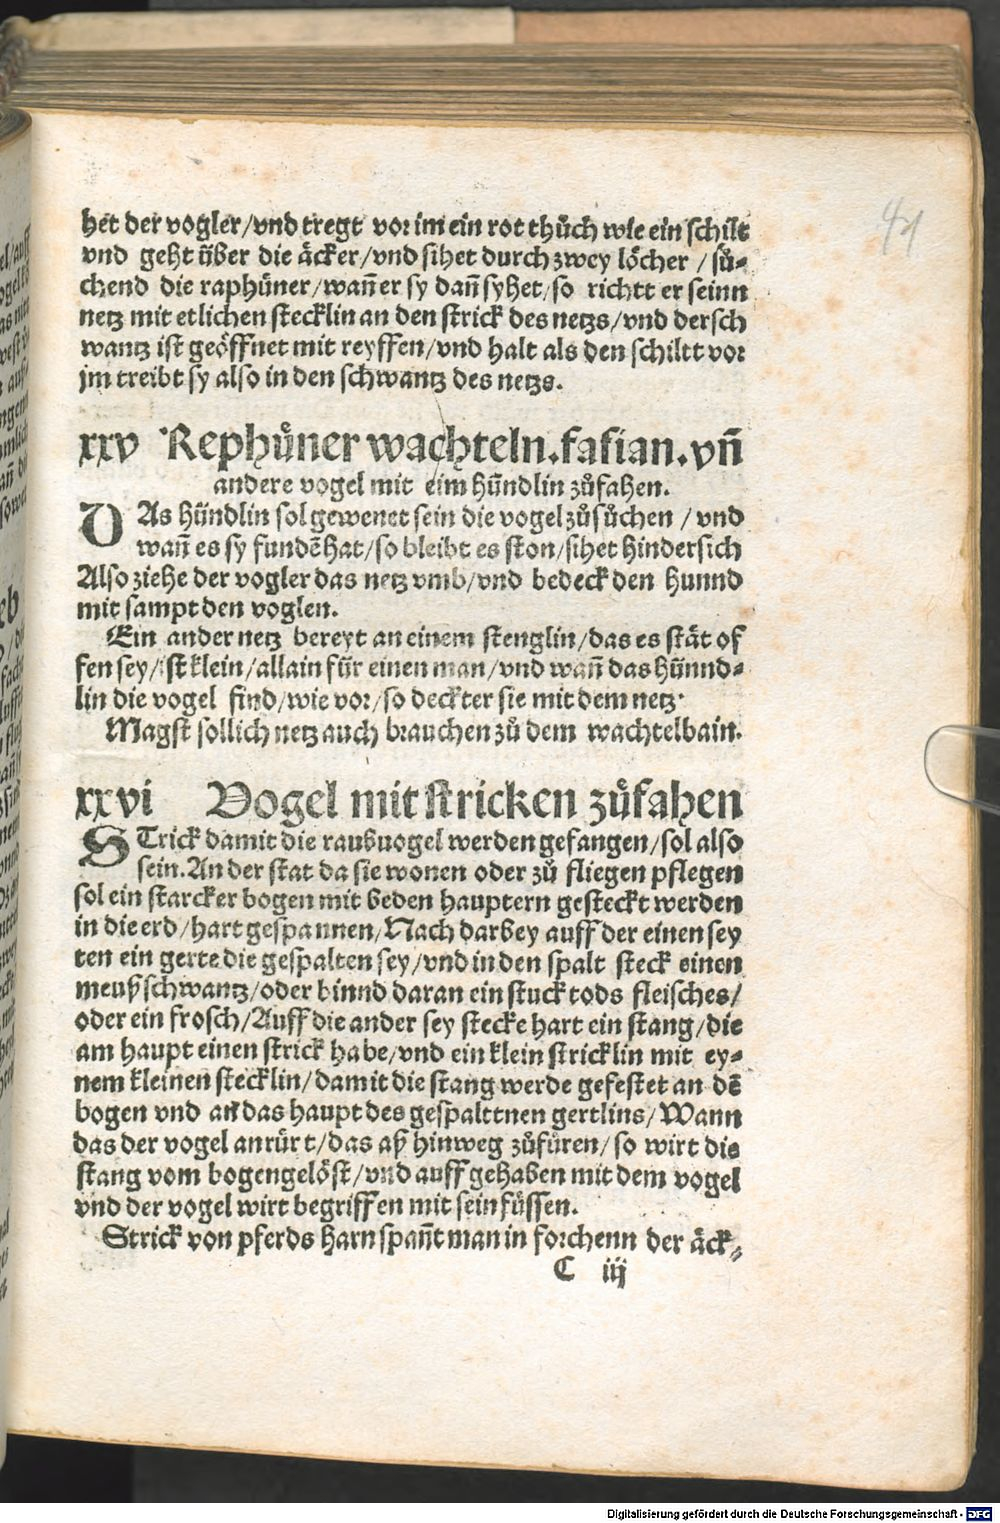 41
het der vogler/vnd tregt vor im ein rot thůch wie ein schilt
vnd geht über die äcker/vnd sihet durch zwey löcher / sů⸗
chend die raphüner/wañ er sy dañ syhet/so richtt er seinn
netz mit etlichen stecklin an den strick des netzs/vnd der sch
wantz ist geöffnet mit reyffen/vnd halt als den schiltt vor
jm treibt sy also in den schwantz des netzs.
xxv Rephüner wachteln.fasian.vñ
andere vogel mit eim hündlin zůfahen.
DAs hündlin sol gewenet sein die vogel zůsůchen / vnd
wañ es sy fundē hat/so bleibt es ston/sihet hindersich
Also ziehe der vogler das netz vmb/vnd bedeck den hunnd
mit sampt den voglen.
Ein ander netz bereyt an einem stenglin/das es stät of
fen sey/ist klein/allain für einen man/vnd wañ das hünnd⸗
lin die vogel find/wie vor/so deckter sie mit dem netz.
Magst sollich netz auch brauchen zů dem wachtelbain.
xxvi Vogel mit stricken zůfahen
STrick damit die raubuogel werden gefangen/sol also
sein. An der stat da sie wonen oder zů fliegen pflegen
sol ein starcker bogen mit beden hauptern gesteckt werden
in die erd/hart gespannen/Nach darbey auff der einen sey
ten ein gerte die gespalten sey/vnd in den spalt steck einen
meußschwantz/oder binnd daran ein stuck tods fleisches/
oder ein frosch/Auff die ander sey stecke hart ein stang/die
am haupt einen strick habe/vnd ein klein stricklin mit ey⸗
nem kleinen stecklin/damit die stang werde gefestet an dē
bogen vnd an das haupt des gespalttnen gertlins/Wann
das der vogel anrürt/das aß hinweg zůfüren/so wirt die
stang vom bogen gelöst/vnd auff gehaben mit dem vogel
vnd der vogel wirt begriffen mit sein füssen.
Strick von pferds harn spañt man in forchenn der äck⸗
C iij
Digitalisierung gefördert durch die Deutsche Forschungsgemeinschaft - DFG